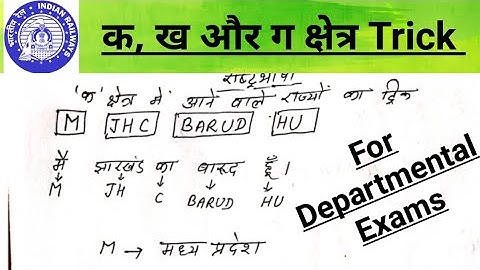 भारतीय रेल INDIAN RAILWAYS
क, ख और ग क्षेत्र Trick
राष्ट्रभाषा
'क' क्षेत्र में आने वाले राज्यों का ट्रिक
M JHC BARUD HU
मैं झारखंड का बारूद हूँ।
M JH C BARUD HU
M → मध्य प्रदेश
For
Departmental
Exams